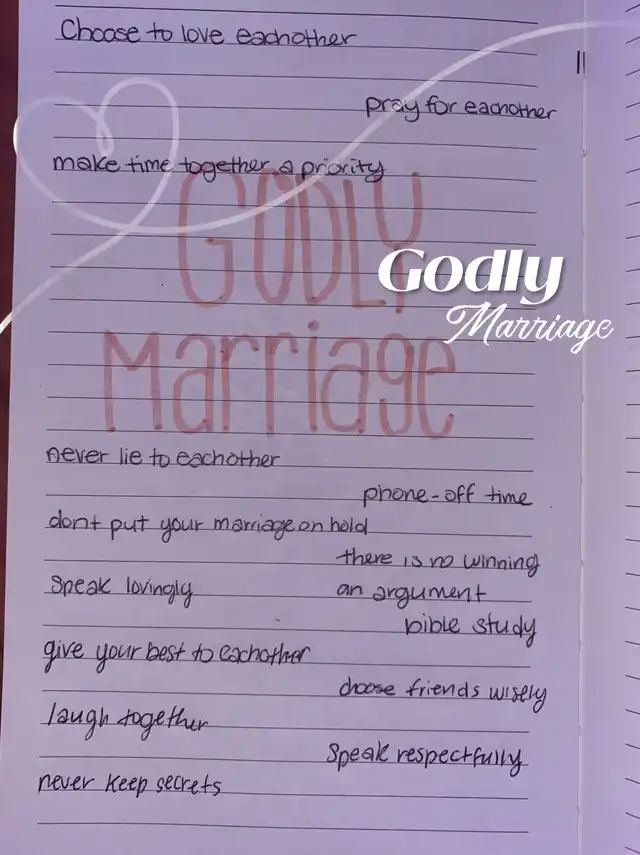 Choose to love eachother
pray for eachother
make time together a priority
GODLY
Godly
Marriage
Marriage
never lie to eachother
phone-off time
dont put your marriage on hold
there is no winning
an argument
Speak lovingly
bible study
give your best to eachother
choose friends wisely
laugh together
Speak respectfully
never keep secrets